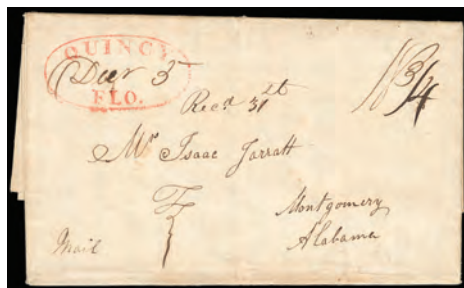 QUINCY
Decr 3
FLO.
Recd 31st
18 3/4
Mr Isaac Jarratt
Montgomery
Alabama
Mail